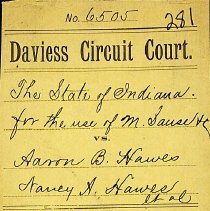 No. 6505 281
Daviess Circuit Court.
The State of Indiana.
for the use of M.
vs.
Aaron B. Hawes
Nancy A. Hawes
et al